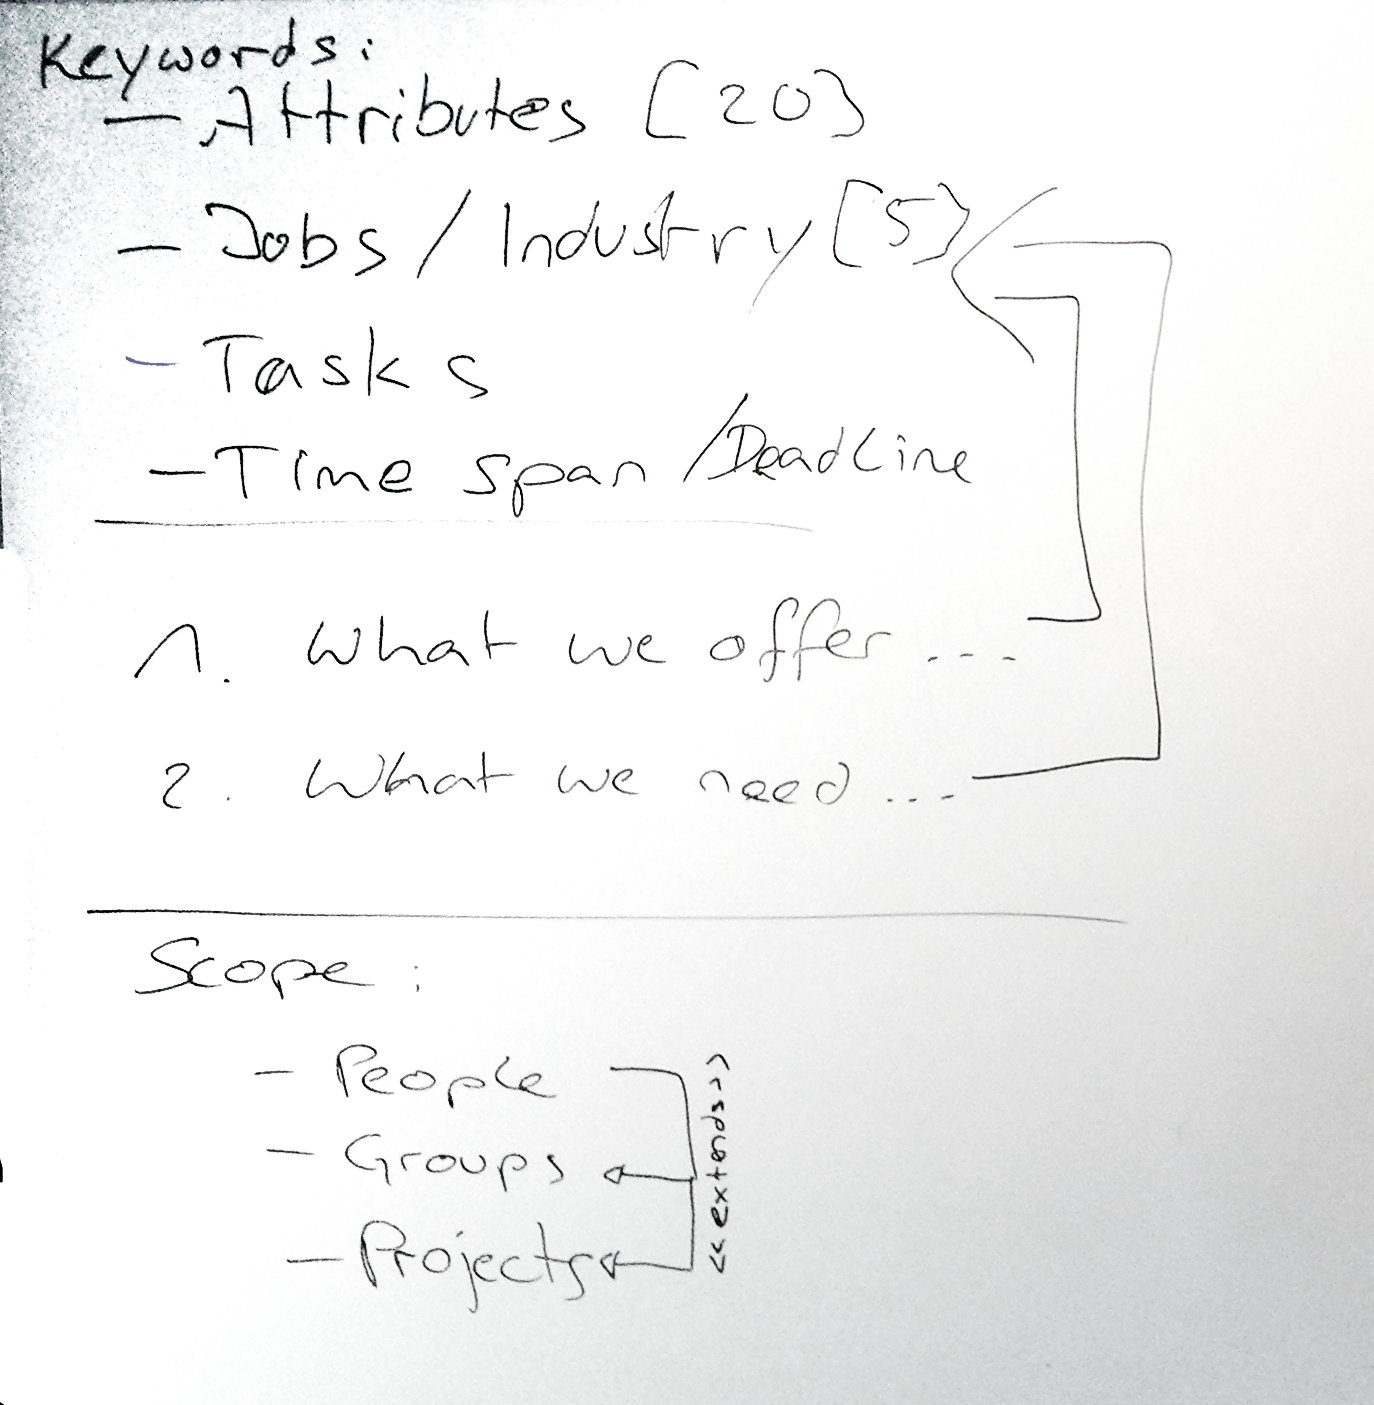 Keywords:
- Attributes [20]
- Jobs / Industry [5]
- Tasks
- Time span / Deadline
1. What we offer ...
2. What we need ...
Scope:
- People
- Groups
- Projects
<<extends>>